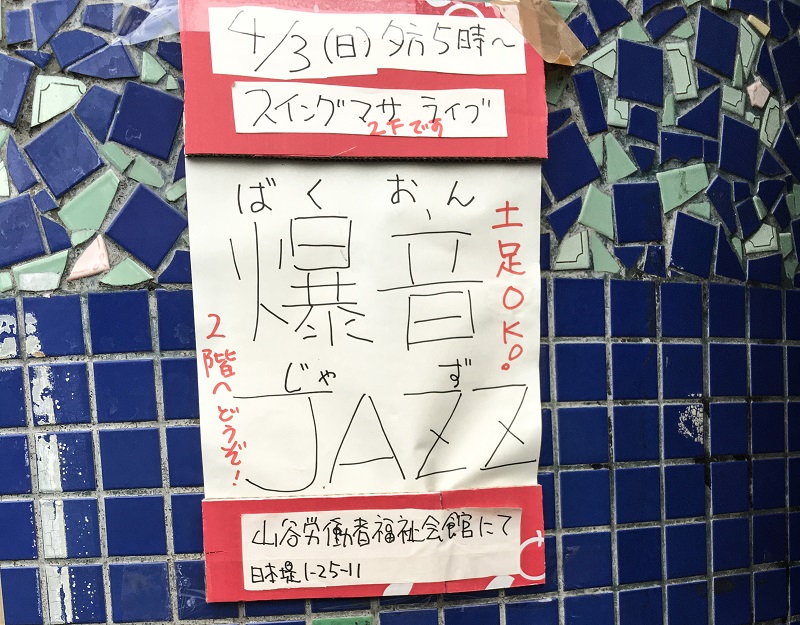 4/3(日)夕方5時～
スイングマサ ライブ
2Fです
ばくおん
爆音
土足OK!
じゃず
JAZZ
2階へどうぞ!
山谷労働者福祉会館にて
日本堤1-25-11